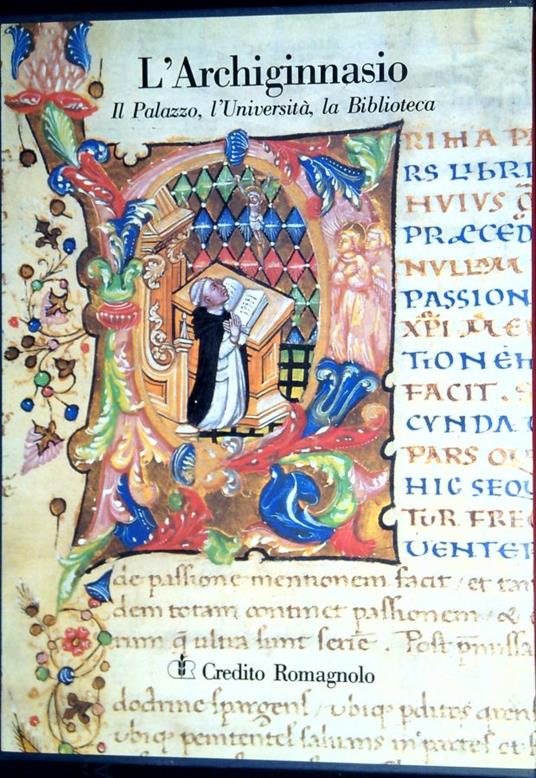 L'Archiginnasio
Il Palazzo, l'Università, la Biblioteca
RIMA P
RS LIBRI
HVIVS Q̄
PRÆCED
NVLLAM
PASSION
XPI MEN
TIONEM
FACIT. S
CVNDA
PARS QU
HIC SEQU
TUR FRE
UENTER
de passione mentionem facit / et tan
dem totam continet passionem / &
rum q̄ ultra sunt serie. Post p̄missa
CR Credito Romagnolo
doctrine spargens / ubiq
ubiq penitentes